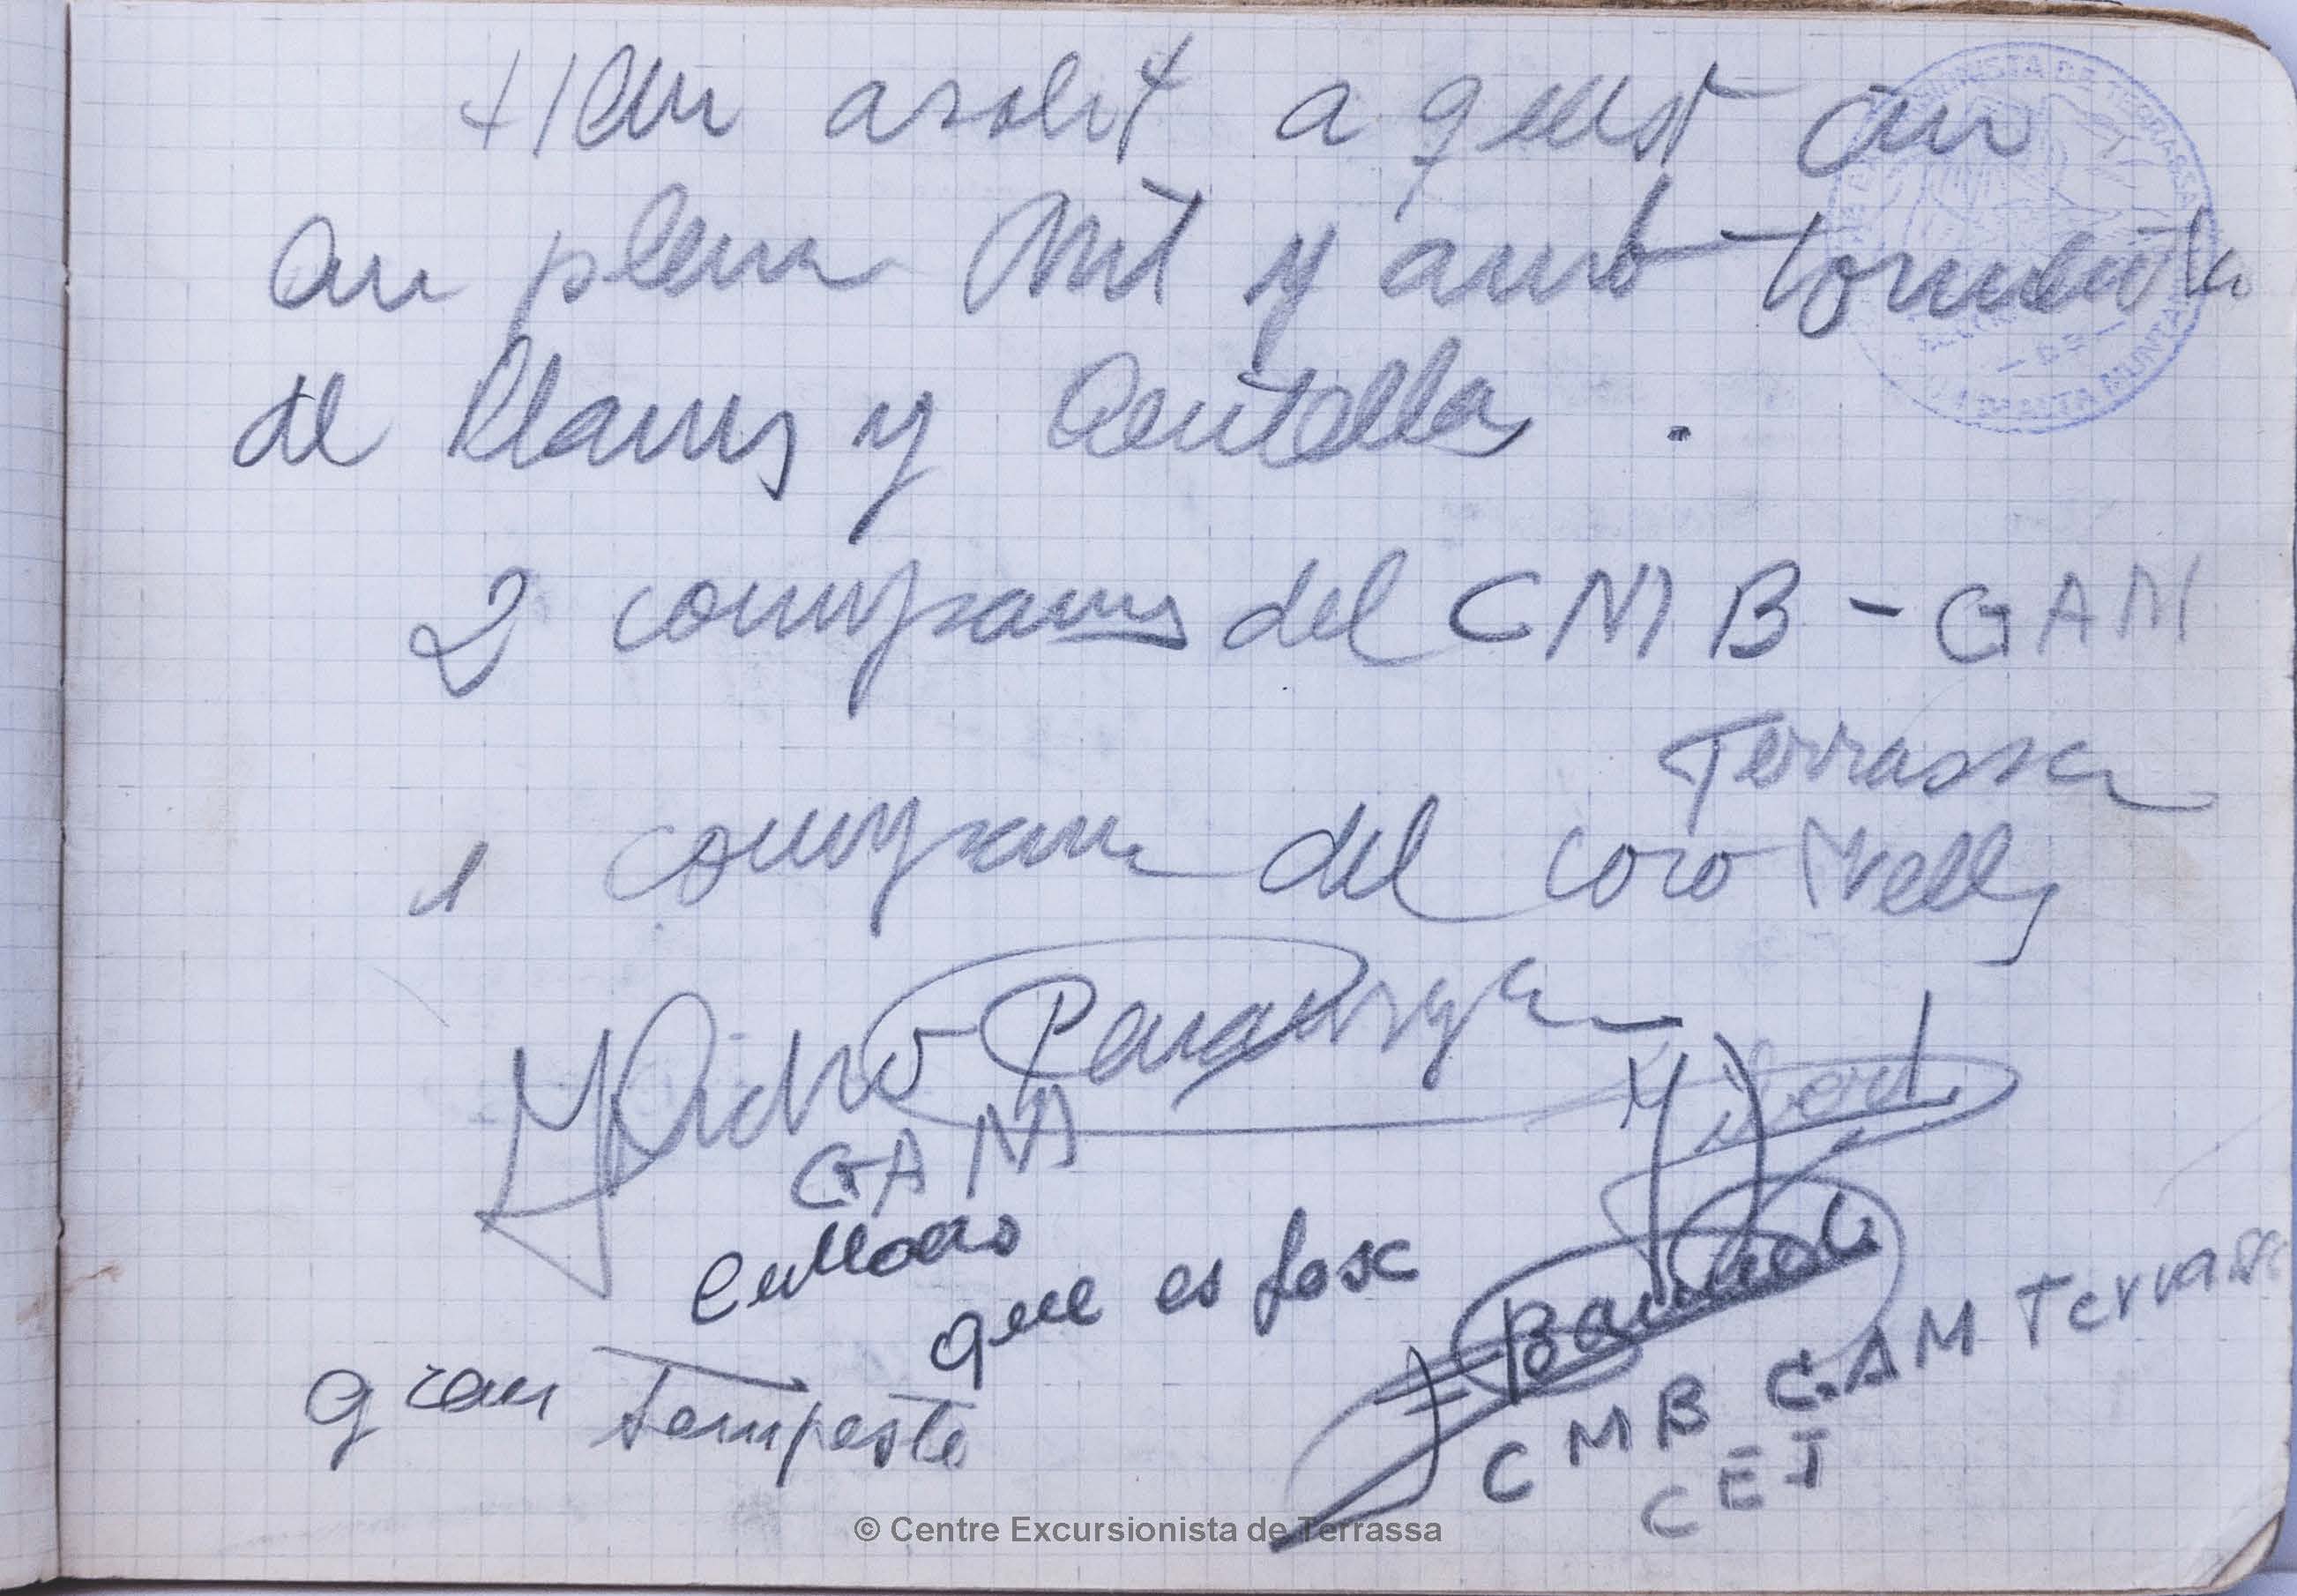 Hem asolit aquest cim
an plena nit y amb tormenta
de llams y Centellas .
2 companys del CMB - GAM
Terrassa
1 company del coro Vell
Isidro
GAM
que es fosc
gran tempesta
CMB GAM Terrassa
CET
CENTRE EXCURSIONISTA DE TERRASSA
© Centre Excursionista de Terrassa